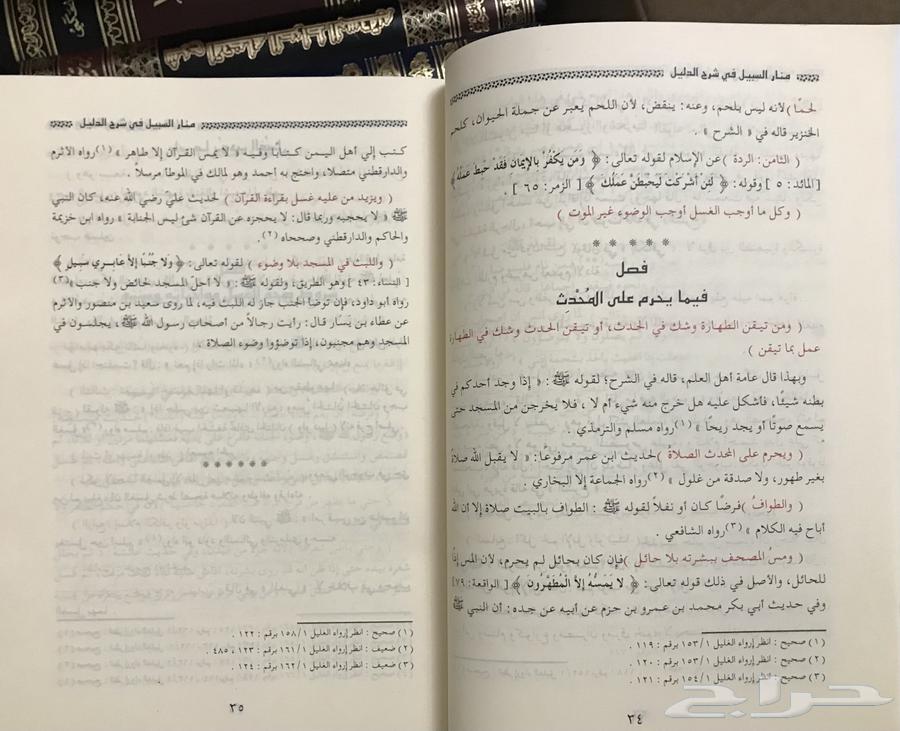 منار السبيل في شرح الدليل
لحمًا) لأنه ليس بلحم، وعنه: ينقض، لأن اللحم يعبر عن جملة الحيوان، كلحم
الخنزير قاله في « الشرح » .
( الثامن: الردة ) عن الإسلام لقوله تعالى: ﴿ وَمَن يَكْفُرْ بِالإِيمَانِ فَقَدْ حَبِطَ عَمَلُهُ ﴾
[المائد: ٥ ] وقوله: ﴿ لَئِنْ أَشْرَكْتَ لَيَحْبَطَنَّ عَمَلُكَ ﴾ [ الزمر: ٦٥ ] .
( وكل ما أوجب الغسل أوجب الوضوء غير الموت )
* * * * *
فصل
فيما يحرم على المُحْدِثِ
( ومن تيقن الطهارة وشك في الحدث، أو تيقن الحدث وشك في الطهارة
عمل بما تيقن ) .
وبهذا قال عامة أهل العلم، قاله في الشرح؛ لقوله ﷺ: « إذا وجد أحدكم في
بطنه شيئًا، فأشكل عليه هل خرج منه شيء أم لا ، فلا يخرجن من المسجد حتى
يسمع صوتًا أو يجد ريحًا » (١) رواه مسلم والترمذي .
( ويحرم على المحدث الصلاة ) لحديث ابن عمر مرفوعًا: « لا يقبل الله صلاة
بغير طهور، ولا صدقة من غلول » (٢) رواه الجماعة إلا البخاري .
( والطوافُ ) فرضًا كان أو نفلاً لقوله ﷺ : الطواف بالبيت صلاة إلا أن الله
أباح فيه الكلام » (٣) رواه الشافعي
( ومسُ المصحف ببشرته بلا حائل ) فإن كان بحائل لم يحرم، لأن المس إذًا
للحائل، والأصل في ذلك قوله تعالى: ﴿ لا يَمَسُّهُ إِلاَّ الْمُطَهَّرُونَ ﴾ [ الواقعة: ٧٩]
وفي حديث أبي بكر محمد بن عمرو بن حزم عن أبيه عن جده: أن النبي ﷺ
(١) صحيح : انظر إرواء الغليل ١/ ١٥٣ برقم : ١١٩ .
(٢) صحيح : انظر إرواء الغليل ١/ ١٥٣ برقم : ١٢٠ .
(٣) صحيح : انظر إرواء الغليل ١/ ١٥٤ برقم : ١٢١ .
٣٤
منار السبيل في شرح الدليل
كتب إلي أهل اليمن كتابًا وفيه « لا يمس القرآن إلا طاهر » (١) رواه الأثرم
والدارقطني متصلاً، واحتج به أحمد وهو لمالك في الموطأ مرسلاً .
( ويزيد من عليه غسل بقراءة القرآن ) لحديث علي رضي الله عنه، كان النبي
ﷺ « لا يحجبه وربما قال: لا يحجزه عن القرآن شئ ليس الجنابة » رواه ابن خزيمة
والحاكم والدارقطني وصححاه (٢).
( واللبث في المسجد بلا وضوء ) لقوله تعالى: ﴿ وَلا جُنُبًا إِلاَّ عَابِرِي سَبِيلٍ ﴾
[ النساء: ٤٣ ] وهو الطريق، ولقوله ﷺ : « لا أحل المسجد لحائض ولا جنب » (٣)
رواه أبو داود، فإن توضأ الجنب جاز له اللبث فيه، لما روى سعيد بن منصور والأثرم
عن عطاء بن يَسَار قال: رأيت رجالاً من أصحاب رسول الله ﷺ، يجلسون في
المسجد وهم مجنبون، إذا توضؤوا وضوء الصلاة .
* * * * * *
(١) صحيح : انظر إرواء الغليل ١/ ١٥٨ برقم : ١٢٢ .
(٢) ضعيف : انظر إرواء الغليل ١/ ١٦١ برقم : ١٢٣ ، ٤٨٥ .
(٣) ضعيف : انظر إرواء الغليل ١/ ١٦٢ برقم : ١٢٤ .
٣٥
حراج